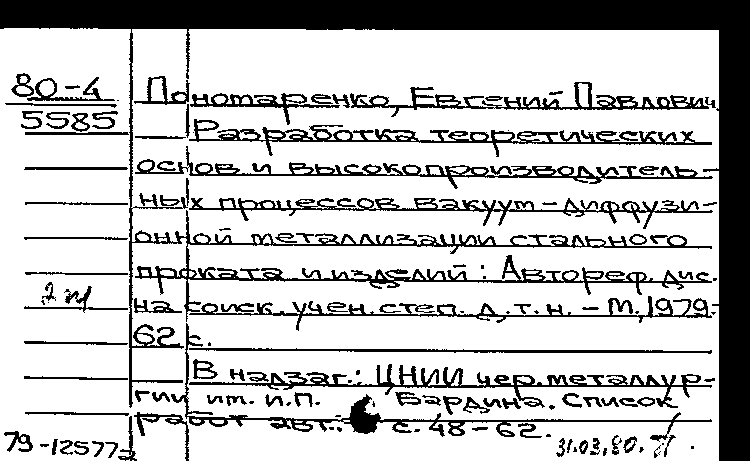 80-4
5585
Пономаренко, Евгений Павлович
Разработка теоретических
основ и высокопроизводитель-
ных процессов вакуум-диффузи-
онной металлизации стального
проката и изделий: Автореф. дис.
на соиск. учен. степ. д.т.н. - М., 1979.-
62 с.
В надзаг.: ЦНИИ чер. металлур-
гии им. И.П. Бардина. Список
работ авт.: с. 48-62.
79-12577
31.03.80.